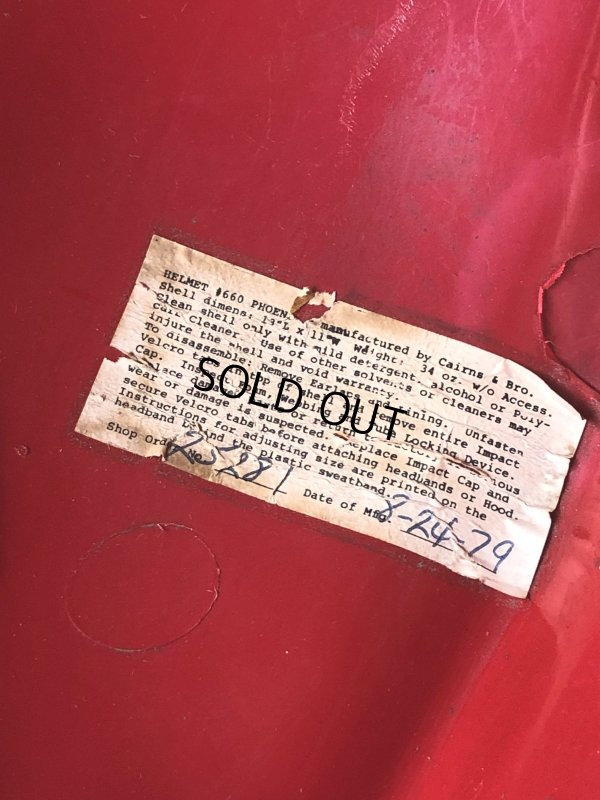 HELMET #660 PHOEN manufactured by Cairns & Bro.
Shell dimens: L x 11 W Weight: 34 oz. w/o Access.
Clean shell only with mild detergent. alcohol or Poly-
Cleaner. Use of other solvents or cleaners may
injure the shell and void warranty.
To disassemble: Remove Earl and Lining. Unfasten
Velcro Remove entire Impact
Cap. Webbing Locking Device.
place
wear or damage is suspected. place Impact Cap and
secure Velcro tabs before attaching headbands or Hood.
Instructions for adjusting size are printed on the
headband behind the plastic sweatband.
Shop Ord 25281 Date of Mfg. 8-24-79
SOLD OUT